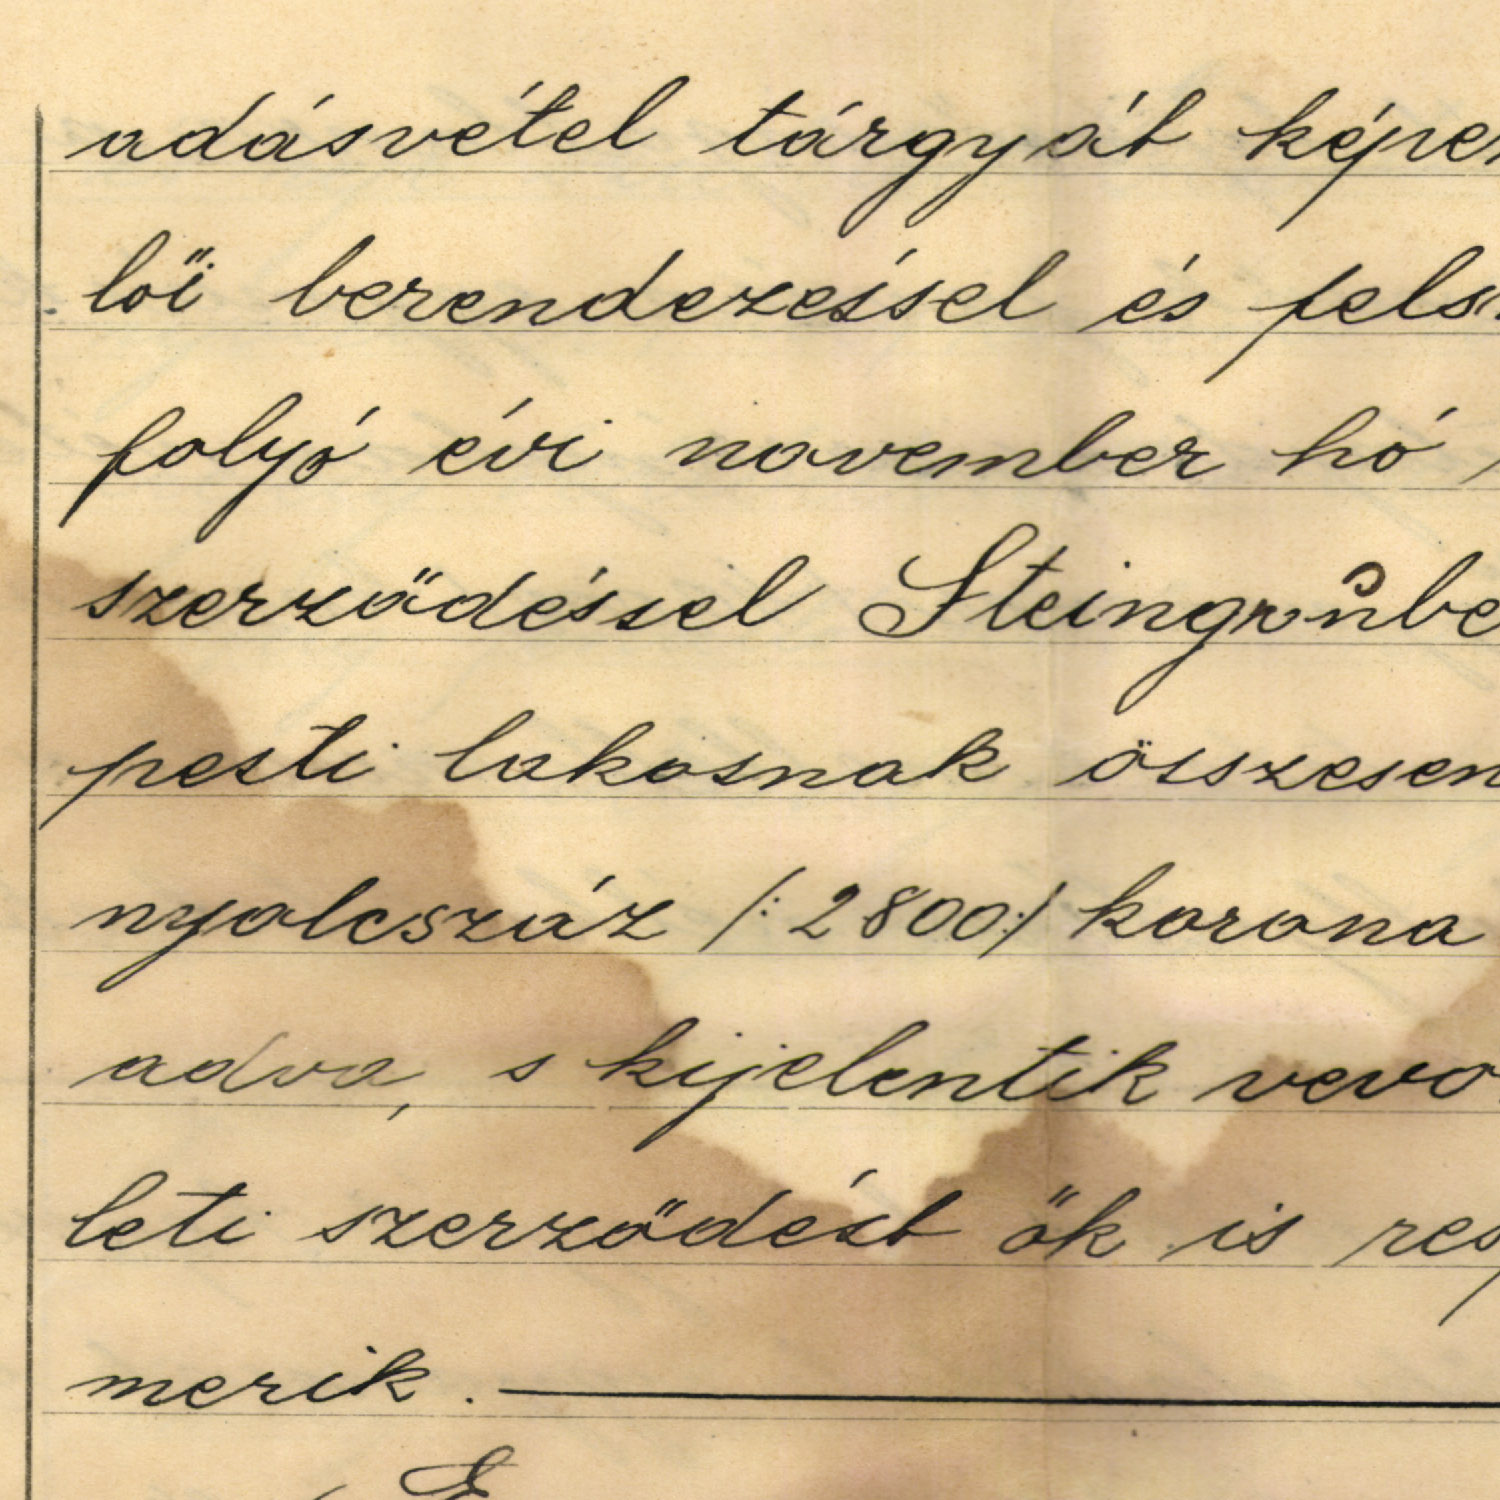 adásvétel tárgyát képez
lői berendezéssel és fels
folyó évi november hó
szerződéssel Steingrube
pesti lakosnak összesen
nyolcszáz /: 2800 :/ korona
adva, s kijelentik vevo
leti szerződést ők is res
merik.